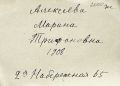 Алексеева
Марина
Трифоновна
1908
2я Набережная 65